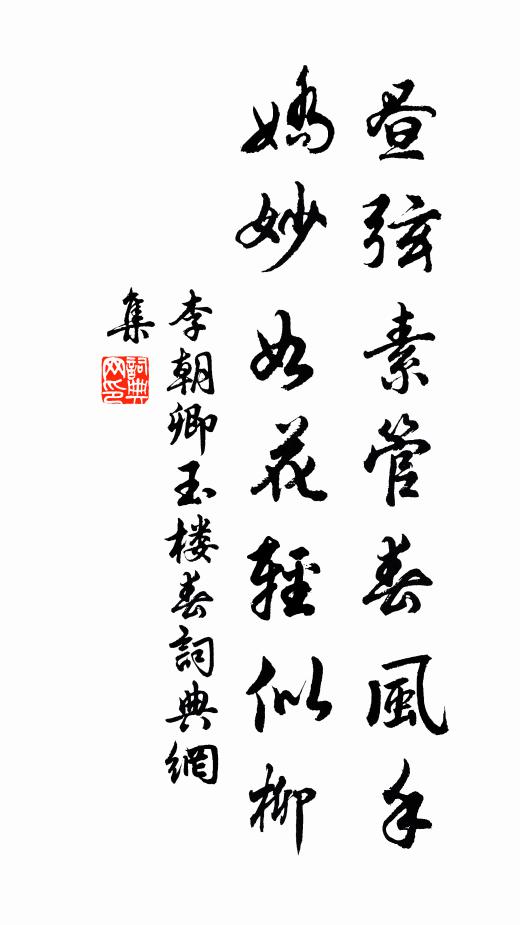 昼弦素管春風手
嬌妙如花輕似柳
李朝卿玉楼春詞典網
集
詞典
网印